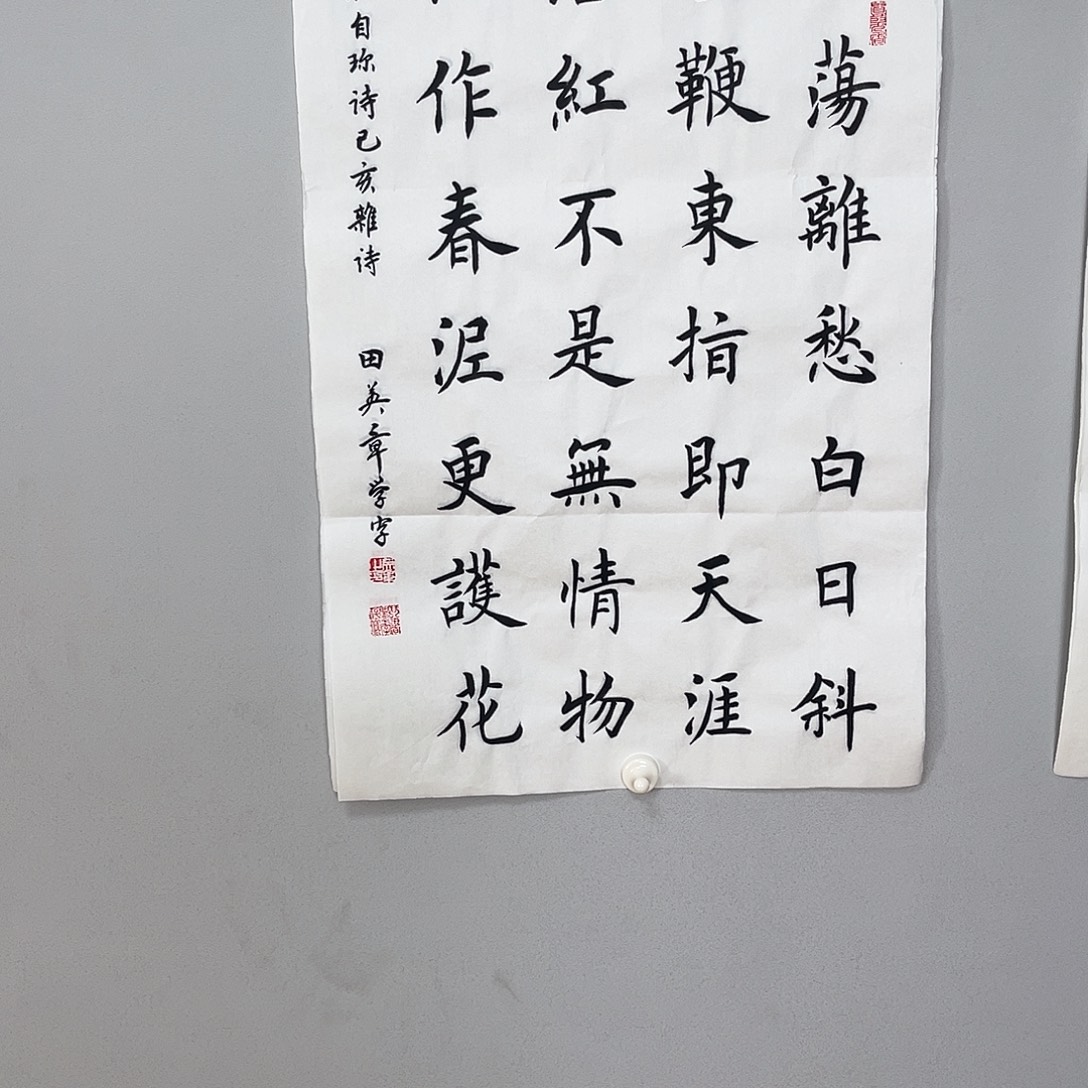 蕩離愁白日斜
鞭東指即天涯
紅不是無情物
作春泥更護花
自珎诗己亥雜诗
田英章学字